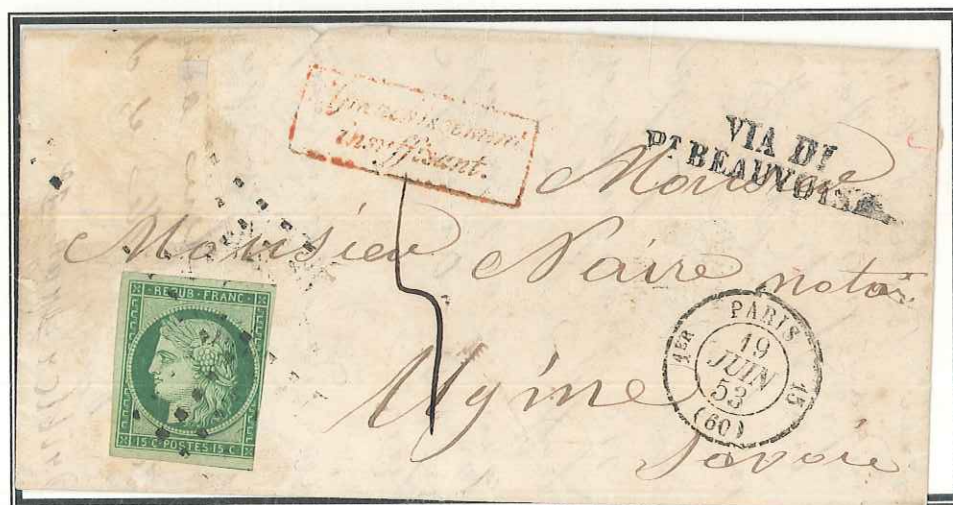 Affranchissement
insuffisant.
VIA DI
PT BEAUVOISIN
Monsieur
Monsieur Naire notaire
Ugine
Savoie
REPUB · FRANC
15 C · POSTES · 15 C
PARIS
1ER 15
19
JUIN
53
(60)